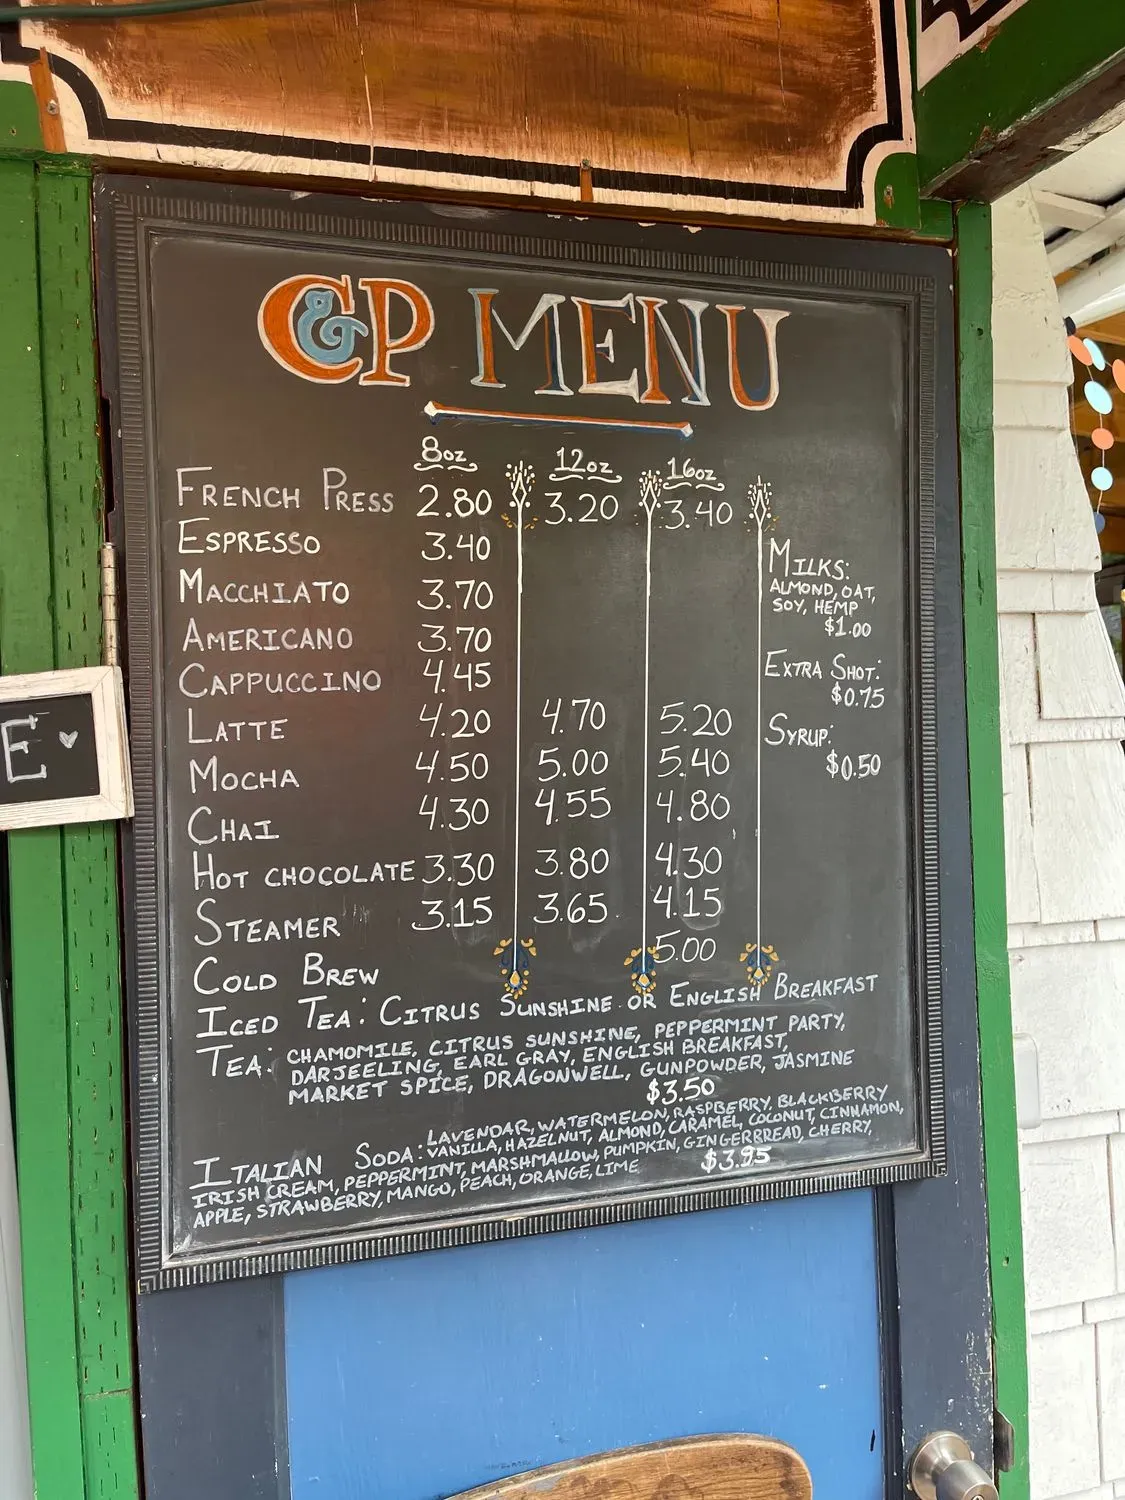 C&P MENU
8oz 12oz 16oz
FRENCH PRESS 2.80 3.20 3.40
ESPRESSO 3.40
MACCHIATO 3.70
AMERICANO 3.70
CAPPUCCINO 4.45
LATTE 4.20 4.70 5.20
MOCHA 4.50 5.00 5.40
CHAI 4.30 4.55 4.80
HOT CHOCOLATE 3.30 3.80 4.30
STEAMER 3.15 3.65 4.15
COLD BREW 5.00
ICED TEA: CITRUS SUNSHINE OR ENGLISH BREAKFAST
TEA: CHAMOMILE, CITRUS SUNSHINE, PEPPERMINT PARTY,
DARJEELING, EARL GRAY, ENGLISH BREAKFAST,
MARKET SPICE, DRAGONWELL, GUNPOWDER, JASMINE
$3.50
LAVENDAR, WATERMELON, RASPBERRY, BLACKBERRY
ITALIAN SODA: VANILLA, HAZELNUT, ALMOND, CARAMEL, COCONUT, CINNAMON,
IRISH CREAM, PEPPERMINT, MARSHMALLOW, PUMPKIN, GINGERBREAD, CHERRY,
APPLE, STRAWBERRY, MANGO, PEACH, ORANGE, LIME $3.95
MILKS:
ALMOND, OAT,
SOY, HEMP
$1.00
EXTRA SHOT:
$0.75
SYRUP:
$0.50
E